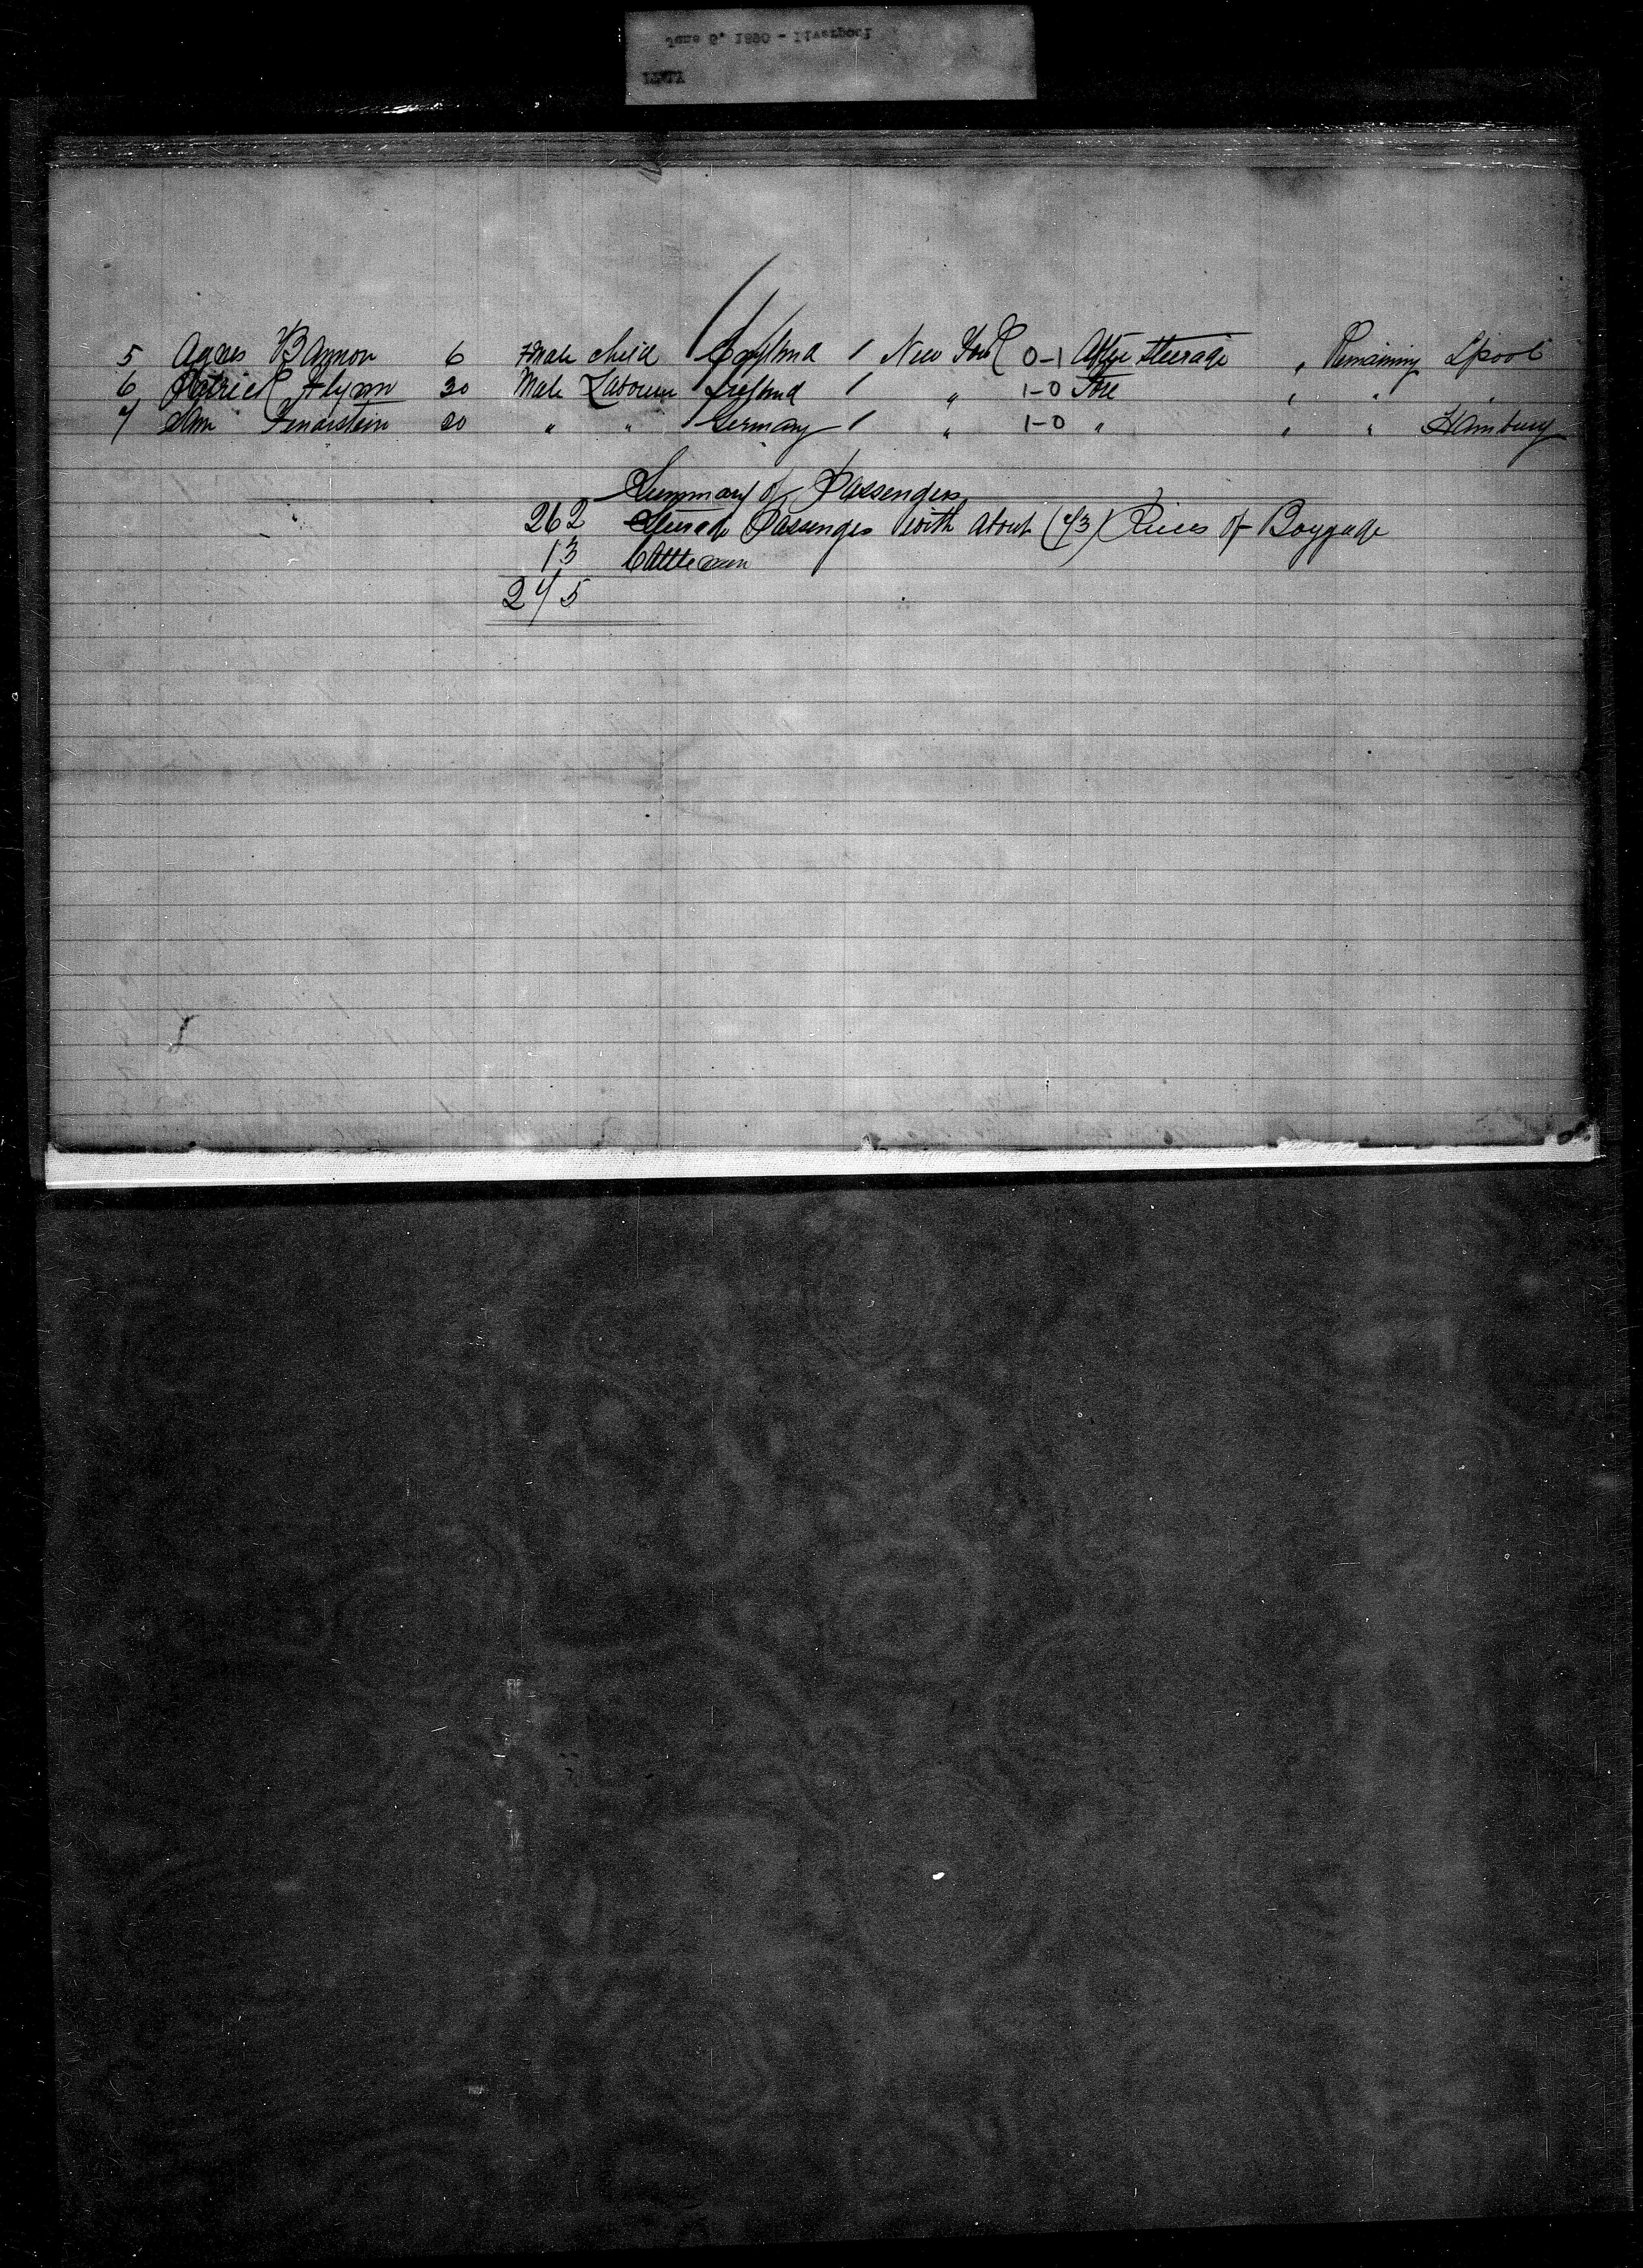 June 6, 1890 - Liverpool
ITALY
5 Agnes Bannon 6 Female child England 1 New York 0-1 After Steerage " Remaining Lpool
6 Patrick Flynn 30 Male Labourer Ireland 1 " 1-0 Fore " "
7 20 " " Germany 1 " 1-0 " " " Hamburg
Summary of Passengers
262 Steerage Passengers with about (73) Pieces of Baggage
13 Cattlemen
275